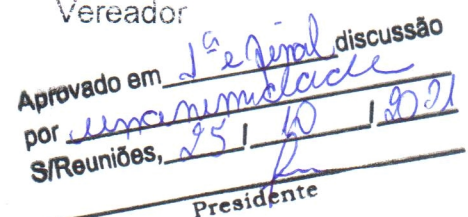 Vereador
Aprovado em 1ª e final discussão
por unanimidade
S/Reuniões, 25 / 10 / 2021
Presidente